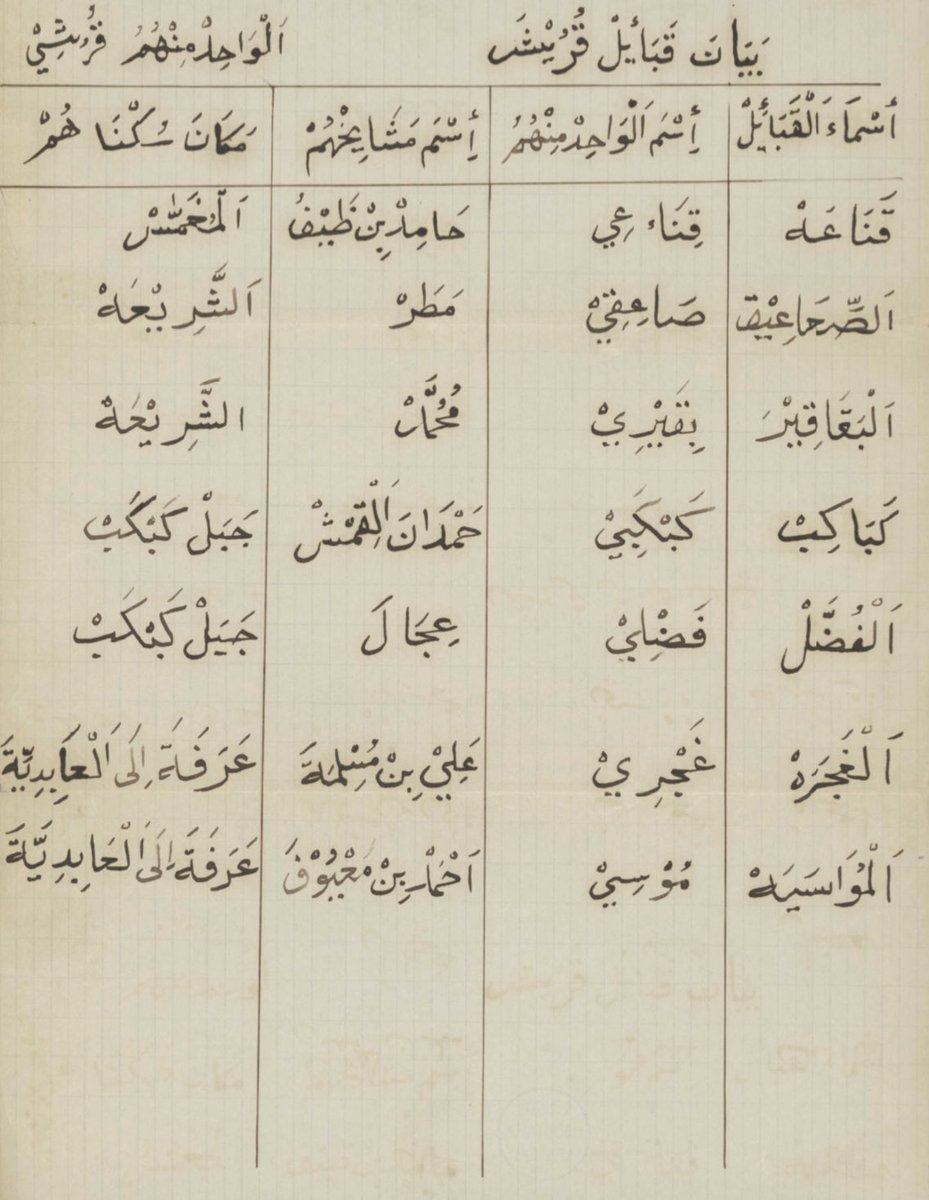 بَيَانَ قَبَأيِلْ قُرُيْشَ اَلْوَاحِدْ مِنْهُمُ قُرُيشِيْ
أسْمَاءَ اَلْقَبَأيِلْ أِسْمَ اَلْوَاحِدْ مِنْهُمُ أِسْمَ مَشَايِخْهُمْ مَكَانَ سُكْنَا هُمْ
قَنَاعَهْ قِنَاءعِي حَامِدْ بِنْ اَلْمُخَمَّسْ
اَلصِّعَاعِيْق صَاعِقِيْ مَطَرْ اَلشَّرِيْعَهْ
اَلْبَقَاقِيْرَ بِقَيْرِيْ مُحُمَّدْ الشَّرِيْعَهْ
كَبَاكِبْ كَبْكَبِيْ حَمْدَانَ اَلْقِمْشْ جَبَلْ كَبْكَبْ
اَلْفُضَّلْ فَضْلِيْ عِجَالَ جَبَلْ كَبْكَبْ
اَلْغَجَرَهْ غَجْرِيْ عَلِيْ بِنْ مُسْلِمَةَ عَرَفَةَ اِلَى اَلْعَابِدِيِّةَ
اَلْمُوَاسَيَهْ مُوْسِيْ اَحْمَدْ بِنْ مَعْيُوْفَ عَرَفَةَ اِلَى اَلْعَابِدِيَّةَ